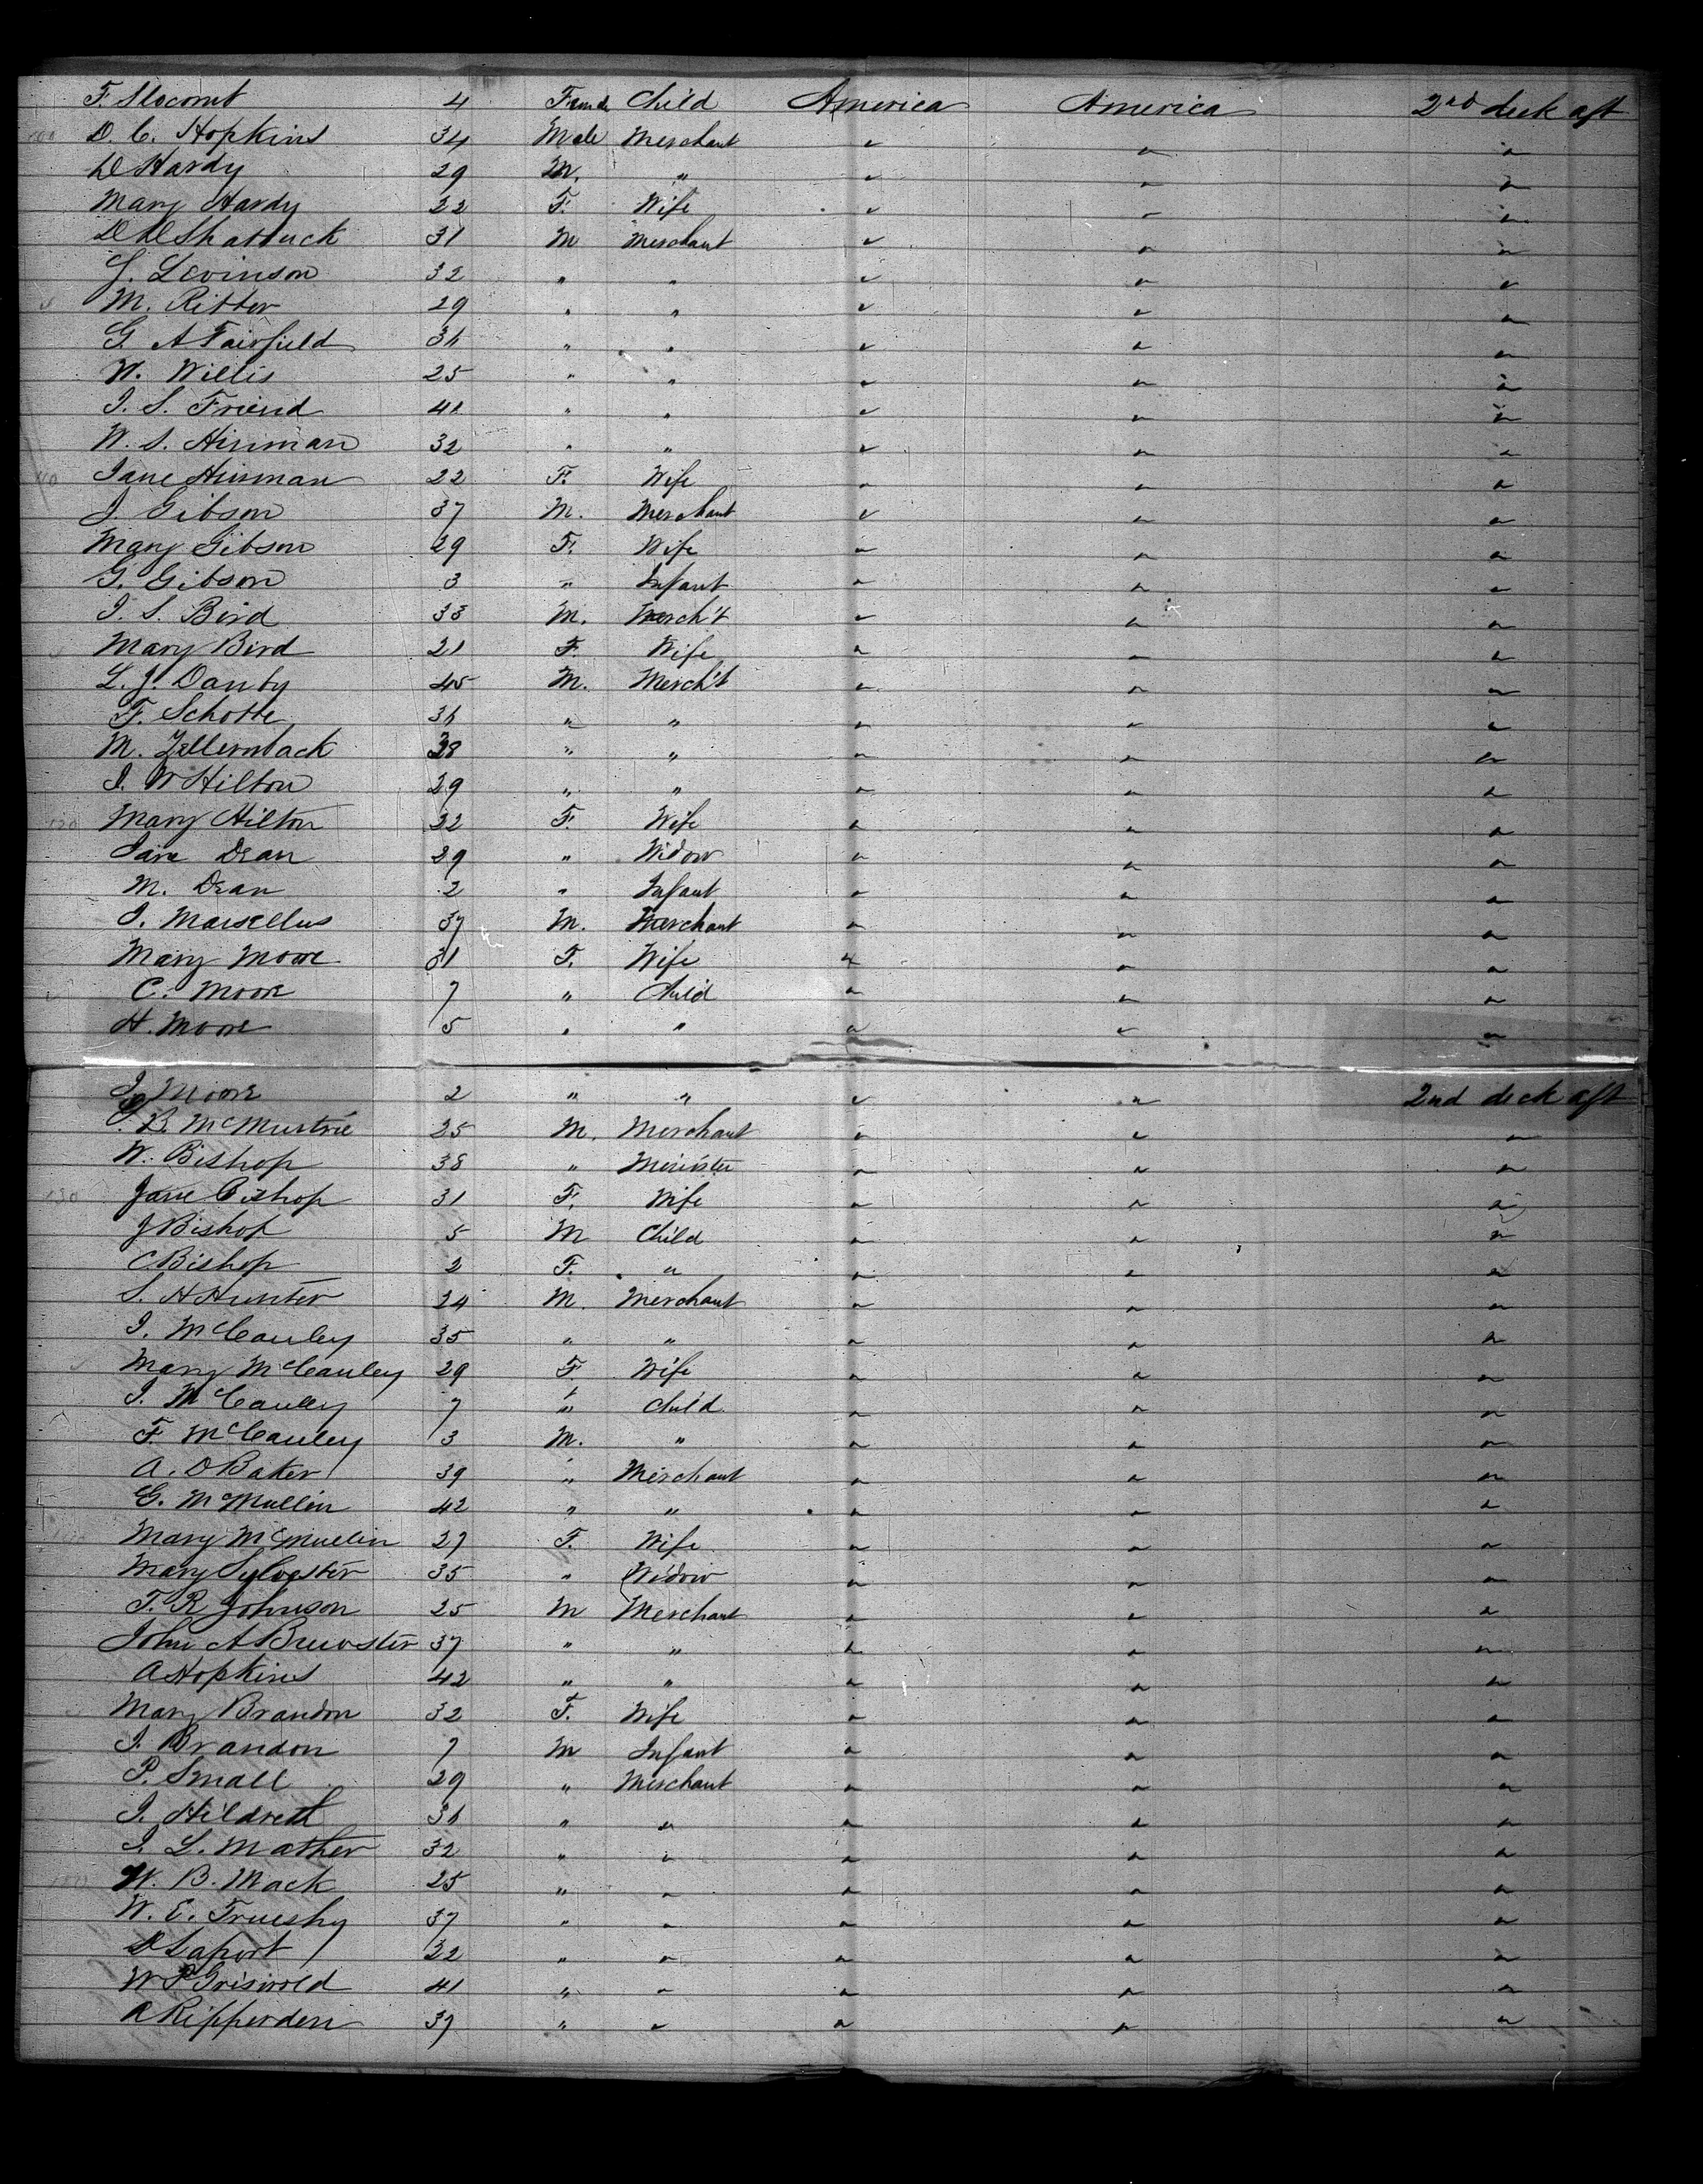 F. Slocomb 4 Female Child America America 2nd deck aft
100 D. C. Hopkins 34 Male Merchant " " "
D Hardy 29 M. " " " "
Mary Hardy 22 F. Wife " " "
D D Shattuck 31 M Merchant " " "
J. Levinson 32 " " " " "
M. Ritter 29 " " " " "
G. A Fairfield 36 " " " " "
W. Willis 25 " " " " "
I. S. Friend 41 " " " " "
W. S. Hinman 32 " " " " "
110 Jane Hinman 22 F. Wife " " "
J. Gibson 37 M. Merchant " " "
Mary Gibson 29 F. Wife " " "
G. Gibson 3 " Infant " " "
I. S. Bird 33 M. Merch't " " "
Mary Bird 21 F. Wife " " "
L. J. Danby 45 M. Merch't " " "
F. Schotte 36 " " " " "
M. Zellernback 38 " " " " "
I. W Hilton 29 " " " " "
120 Mary Hilton 32 F. Wife " " "
Jane Dean 29 " Widow " " "
M. Dean 2 " Infant " " "
I. Marsellus 37 M. Merchant " " "
Mary Moore 31 F. Wife " " "
C. Moore 7 " Child " " "
H. Moore 5 " " " " "
J Moore 2 " " " " 2nd deck aft
B. McMustrie 25 M. Merchant " " "
W. Bishop 38 " Minister " " "
130 Jane Bishop 31 F. Wife " " "
J Bishop 5 M Child " " "
C Bishop 2 F. " " " "
S. H Hunter 24 M. Merchant " " "
I. McCauley 35 " " " " "
Mary McCauley 29 F. Wife " " "
I. McCauley 7 " Child " " "
F. McCauley 3 M. " " " "
A. D Baker 39 " Merchant " " "
G. McMullin 42 " " " " "
140 Mary McMullin 27 F. Wife " " "
Mary Sylvester 35 " Widow " " "
T. R Johnson 25 M Merchant " " "
John A Brewster 37 " " " " "
A Hopkins 42 " " " " "
Mary Brandon 32 F. Wife " " "
I. Brandon 7 M Infant " " "
P. Small 29 " Merchant " " "
I. Hildreth 36 " " " " "
I. L. Mather 32 " " " " "
150 W. B. Mack 25 " " " " "
W. E. Truesby 37 " " " " "
D Laport 32 " " " " "
W P Griswold 41 " " " " "
A Ripperden 37 " " " " "